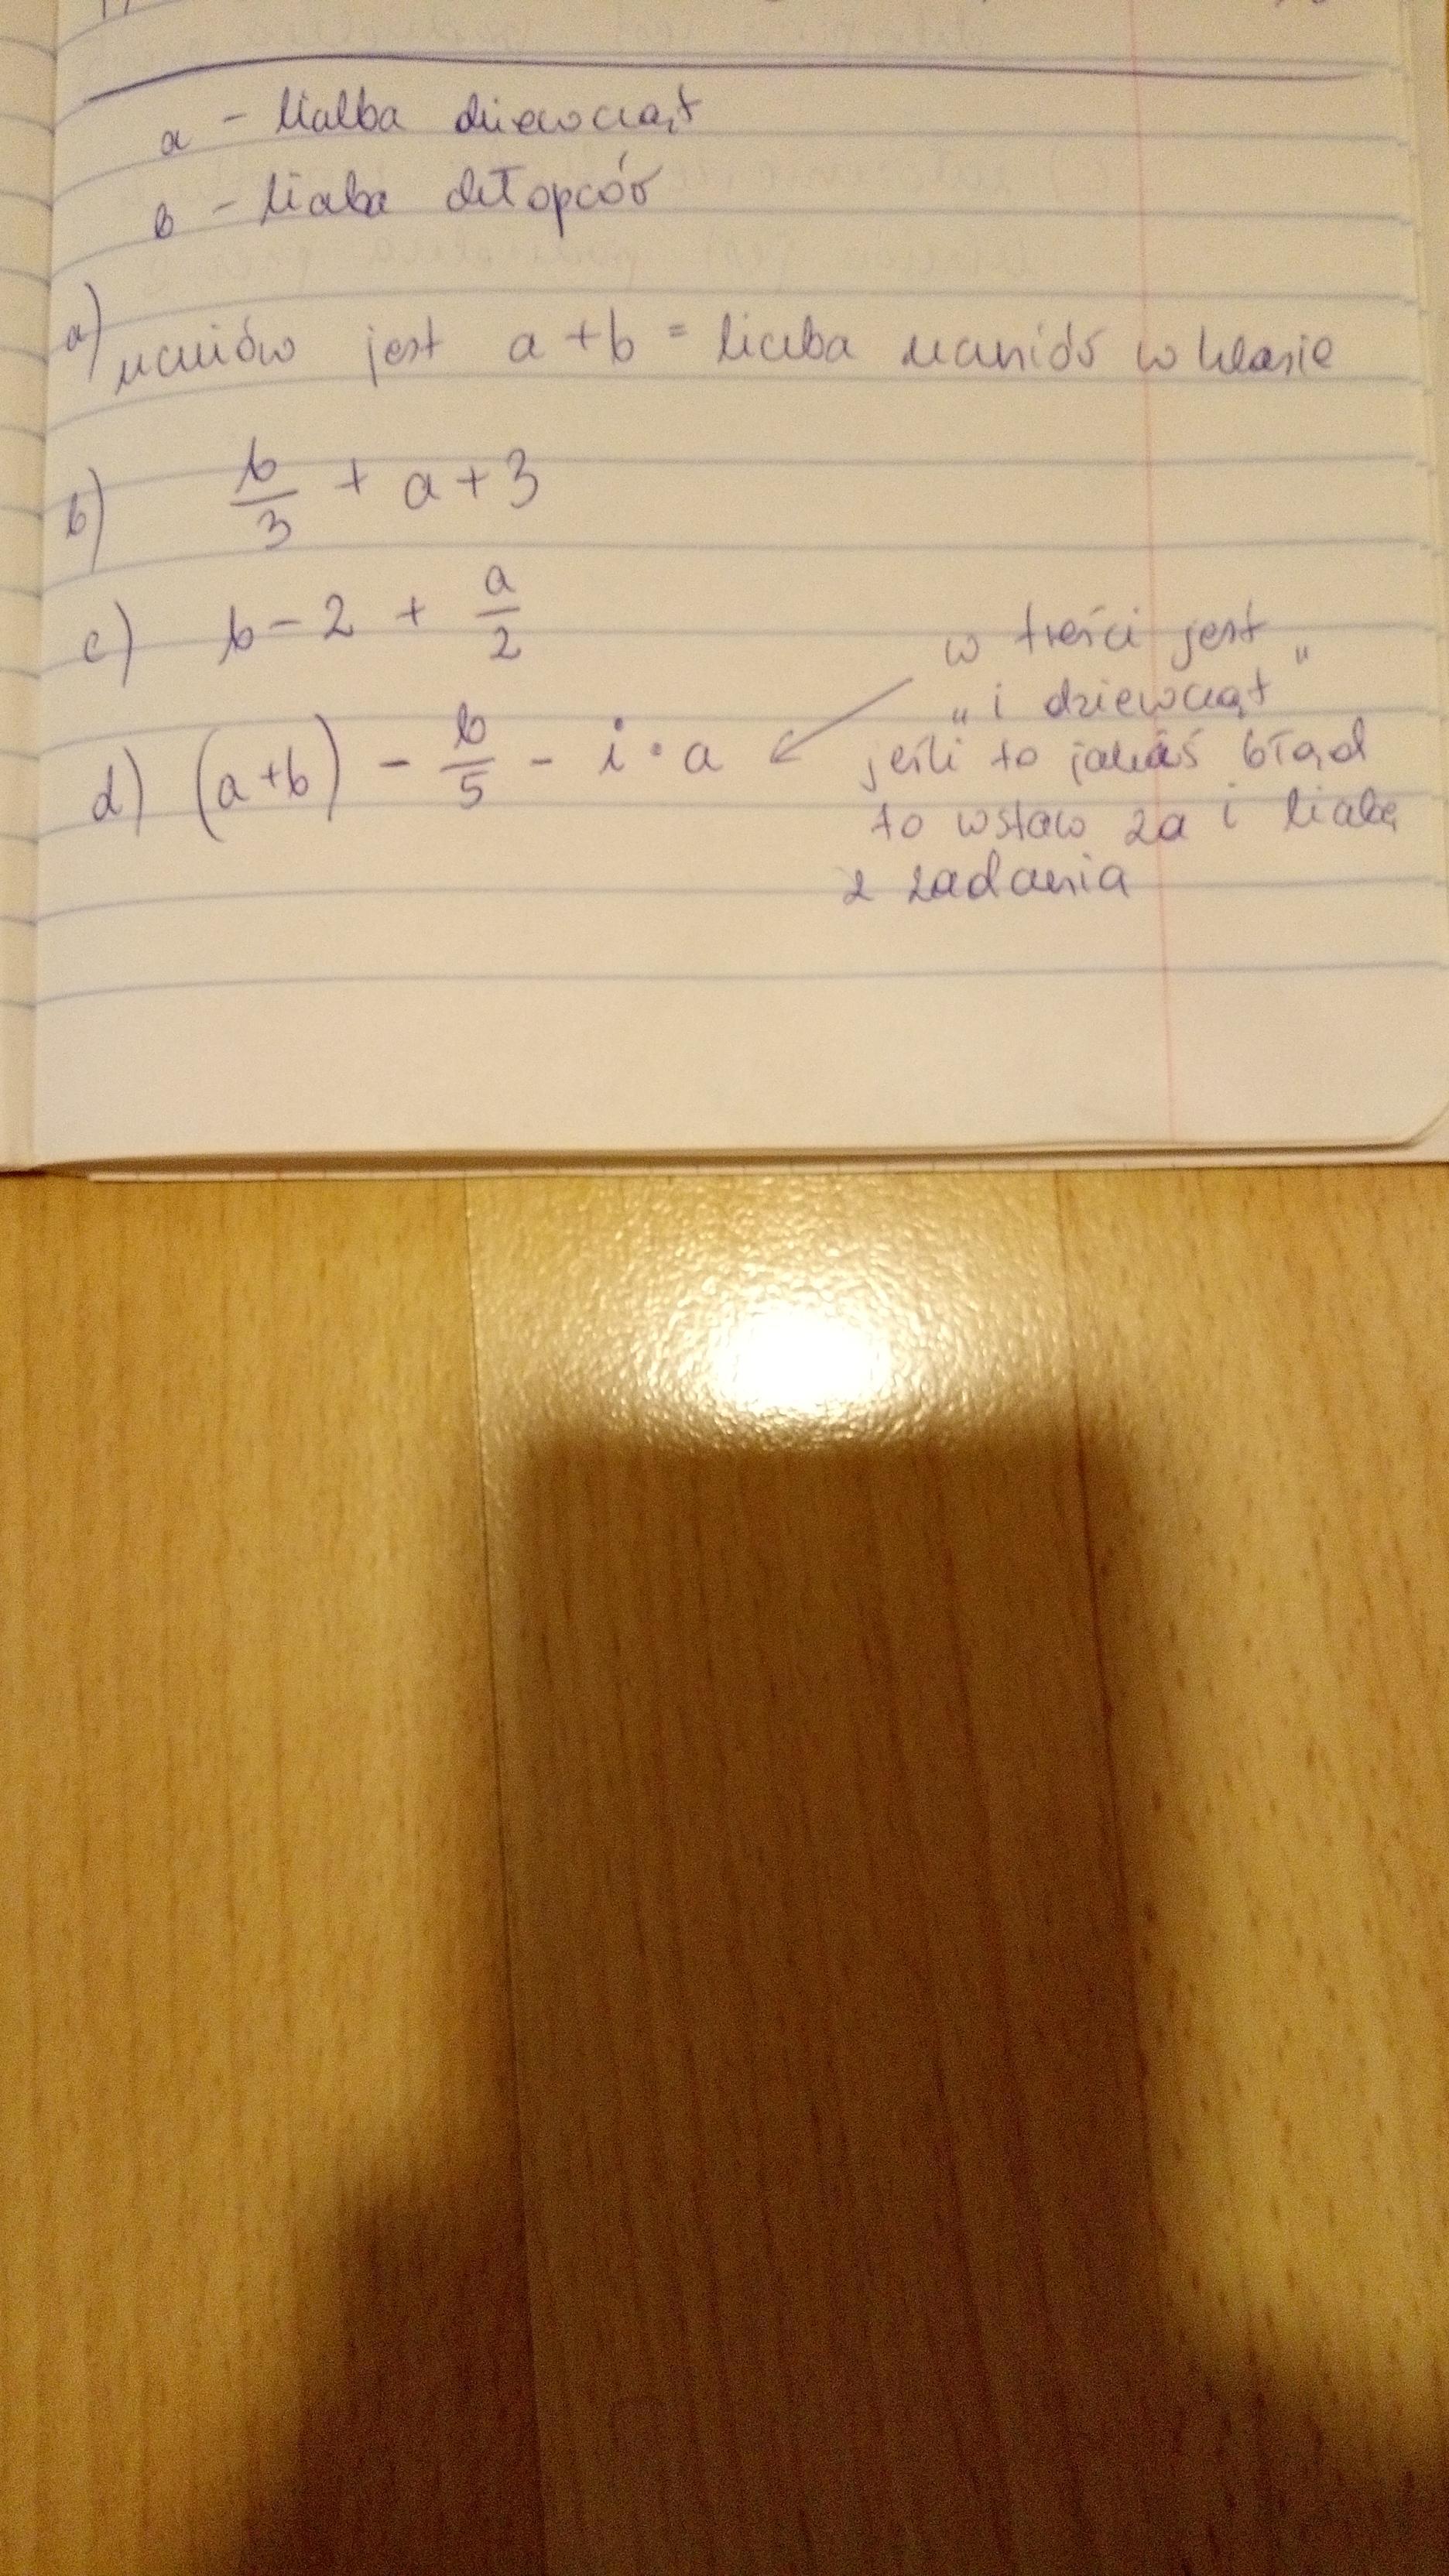 a - liczba dziewcząt
b - liczba chłopców
a) uczniów jest a + b = liczba uczniów w klasie
b) b/3 + a + 3
c) b - 2 + a/2
d) (a+b) - b/5 - i · a
w treści jest
„i dziewcząt"
jeśli to jakiś błąd
to wstaw za i liczbę
z zadania